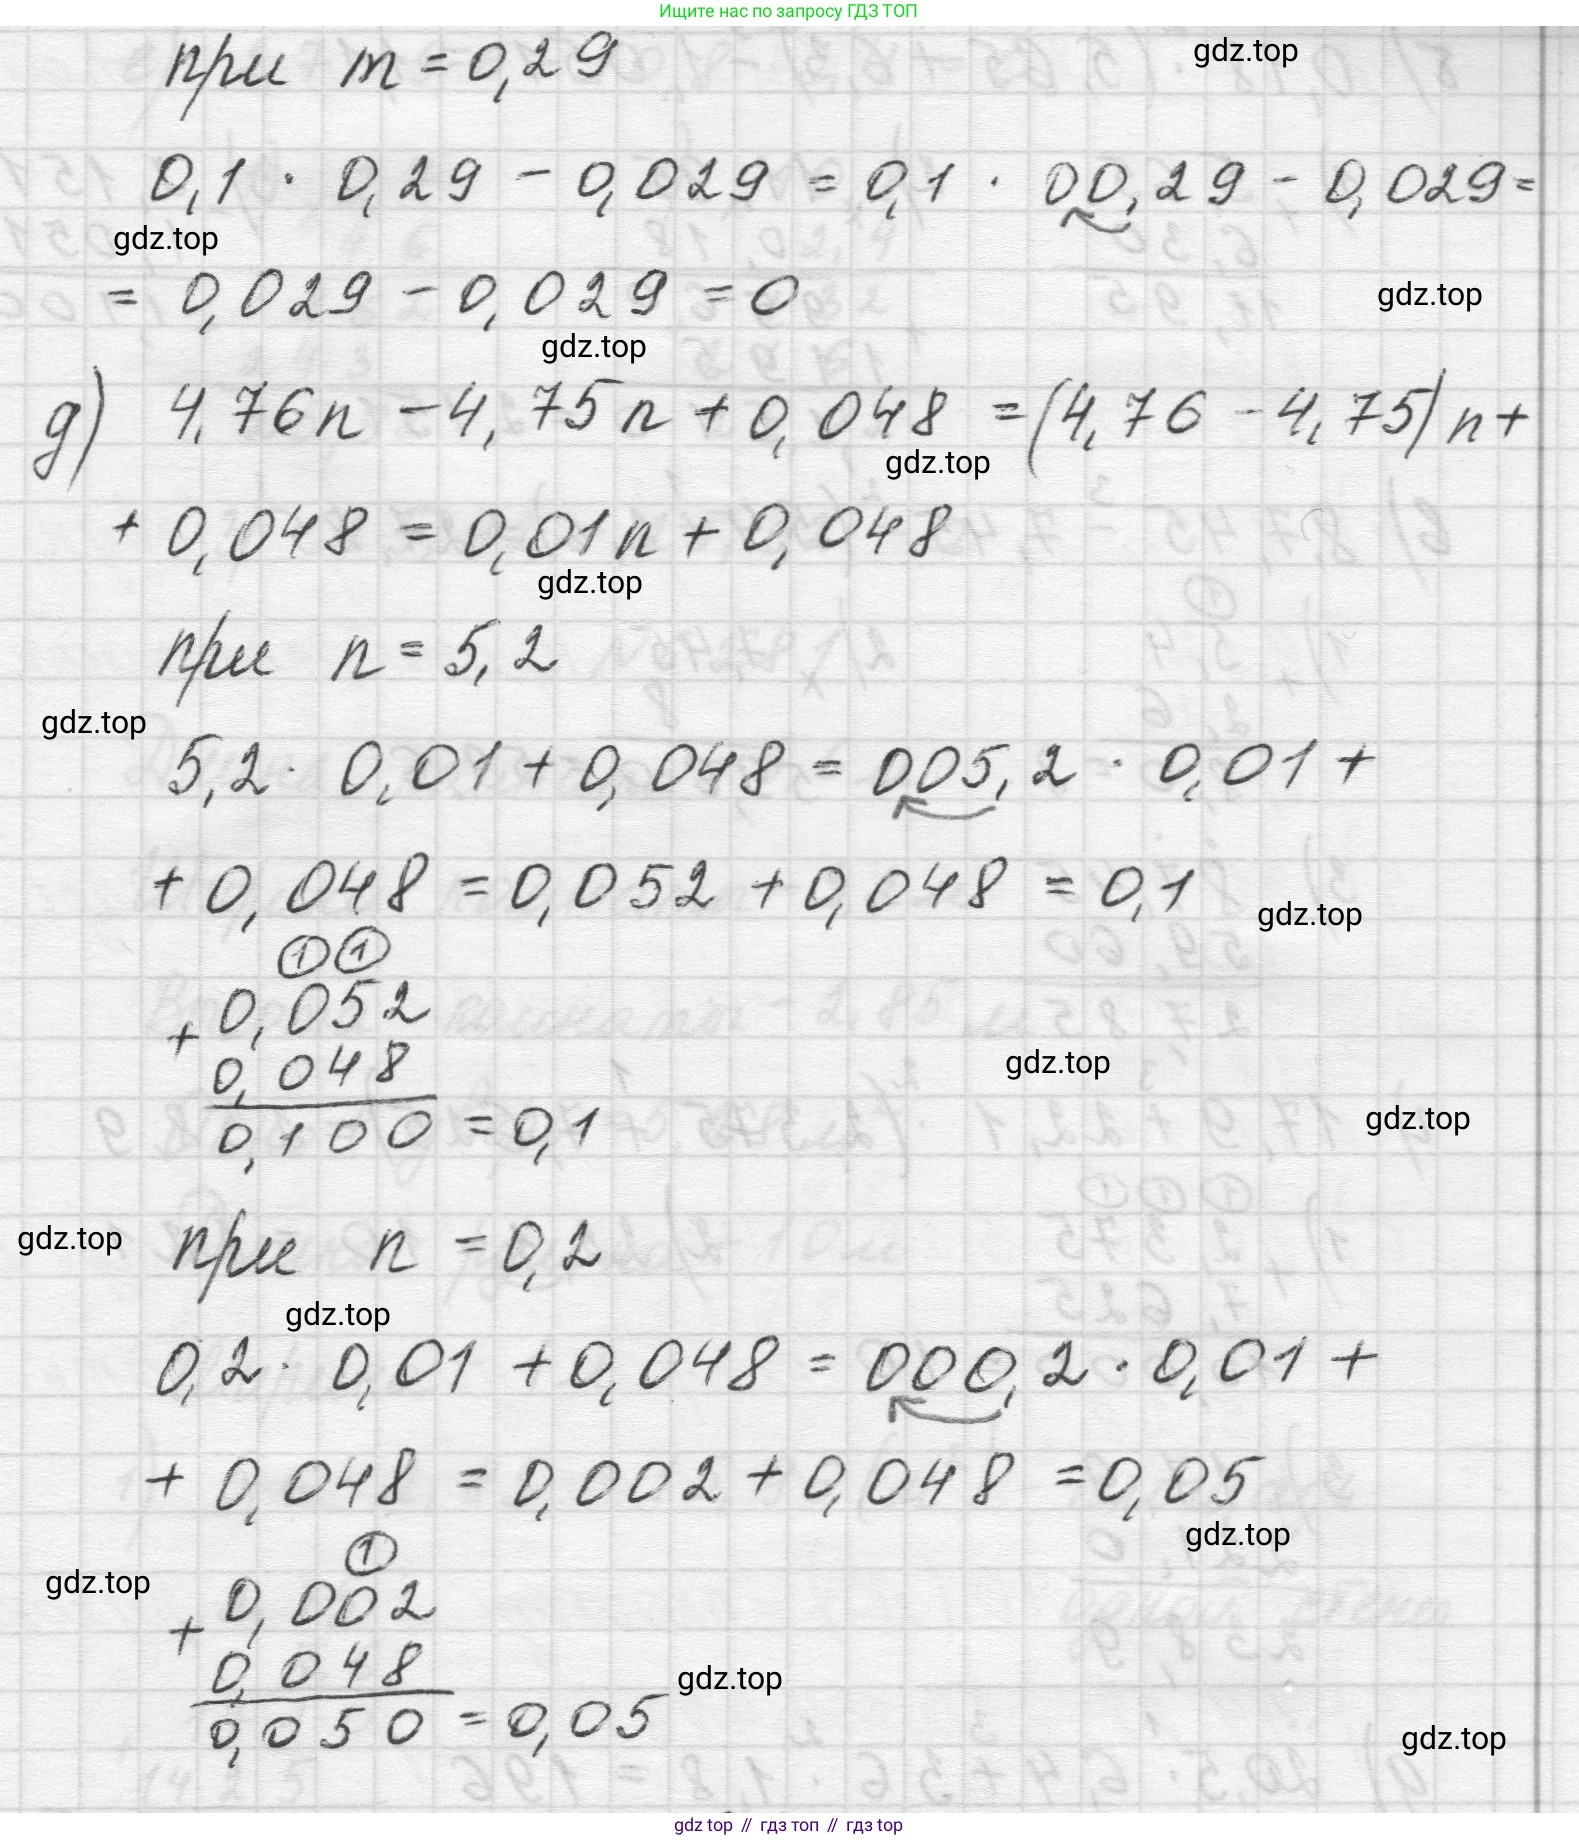 Ищите нас по запросу ГДЗ ТОП
при m = 0,29
gdz.top
0,1 · 0,29 - 0,029 = 0,1 · 00,29 - 0,029 =
gdz.top
= 0,029 - 0,029 = 0
gdz.top
gdz.top
д) 4,76n - 4,75n + 0,048 = (4,76 - 4,75)n +
gdz.top
+ 0,048 = 0,01n + 0,048
gdz.top
при n = 5,2
gdz.top
5,2 · 0,01 + 0,048 = 005,2 · 0,01 +
+ 0,048 = 0,052 + 0,048 = 0,1
gdz.top
1 1
+ 0,052
0,048
gdz.top
0,100 = 0,1
gdz.top
при n = 0,2
gdz.top
gdz.top
0,2 · 0,01 + 0,048 = 000,2 · 0,01 +
+ 0,048 = 0,002 + 0,048 = 0,05
gdz.top
1
gdz.top
+ 0,002
0,048
gdz.top
0,050 = 0,05
gdz.top
gdz top // гдз топ // гдз top